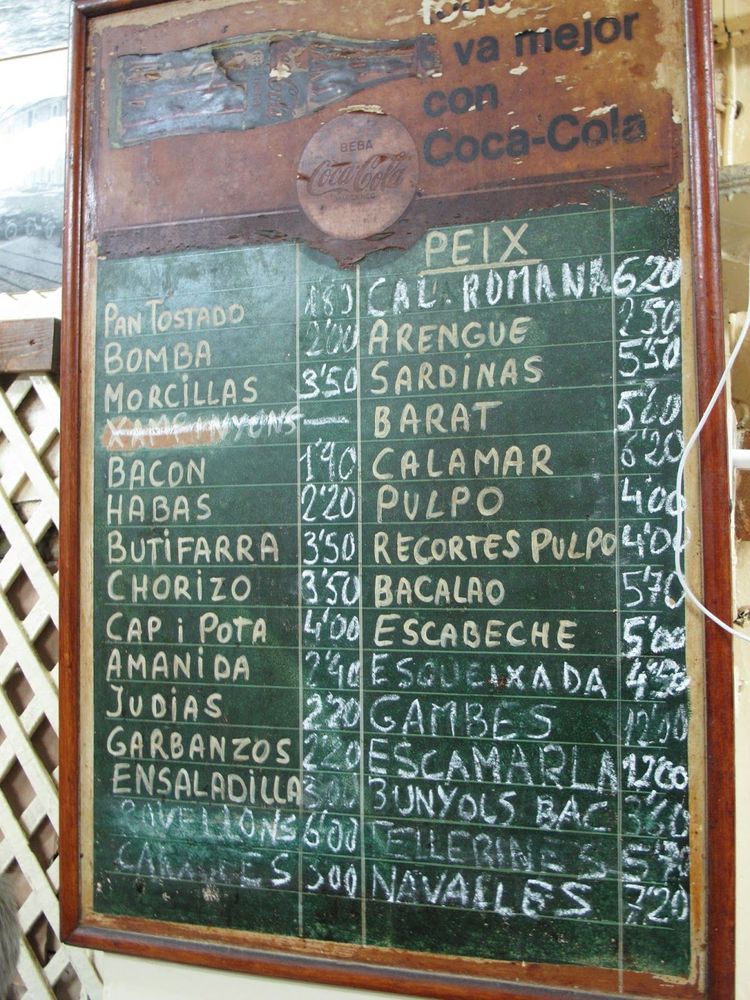 Todo
va mejor
con
Coca-Cola
BEBA
Coca-Cola
PAN TOSTADO 1'80
BOMBA 2'00
MORCILLAS 3'50
XAMPINYONS —
BACON 1'90
HABAS 2'20
BUTIFARRA 3'50
CHORIZO 3'50
CAP i POTA 4'00
AMANIDA 2'40
JUDIAS 2'20
GARBANZOS 2'20
ENSALADILLA
6'00
300
PEIX
CAL. ROMANA 6'20
ARENGUE 2'50
SARDINAS 5'50
BARAT
CALAMAR 6'20
PULPO 4'00
RECORTES PULPO 4'00
BACALAO 5'70
ESCABECHE 5'00
ESQUEIXADA 4'50
GAMBES 12'00
ESCAMARLA 12'00
BUNYOLS BAC
TELLERINES 5'70
NAVALLES 7'20